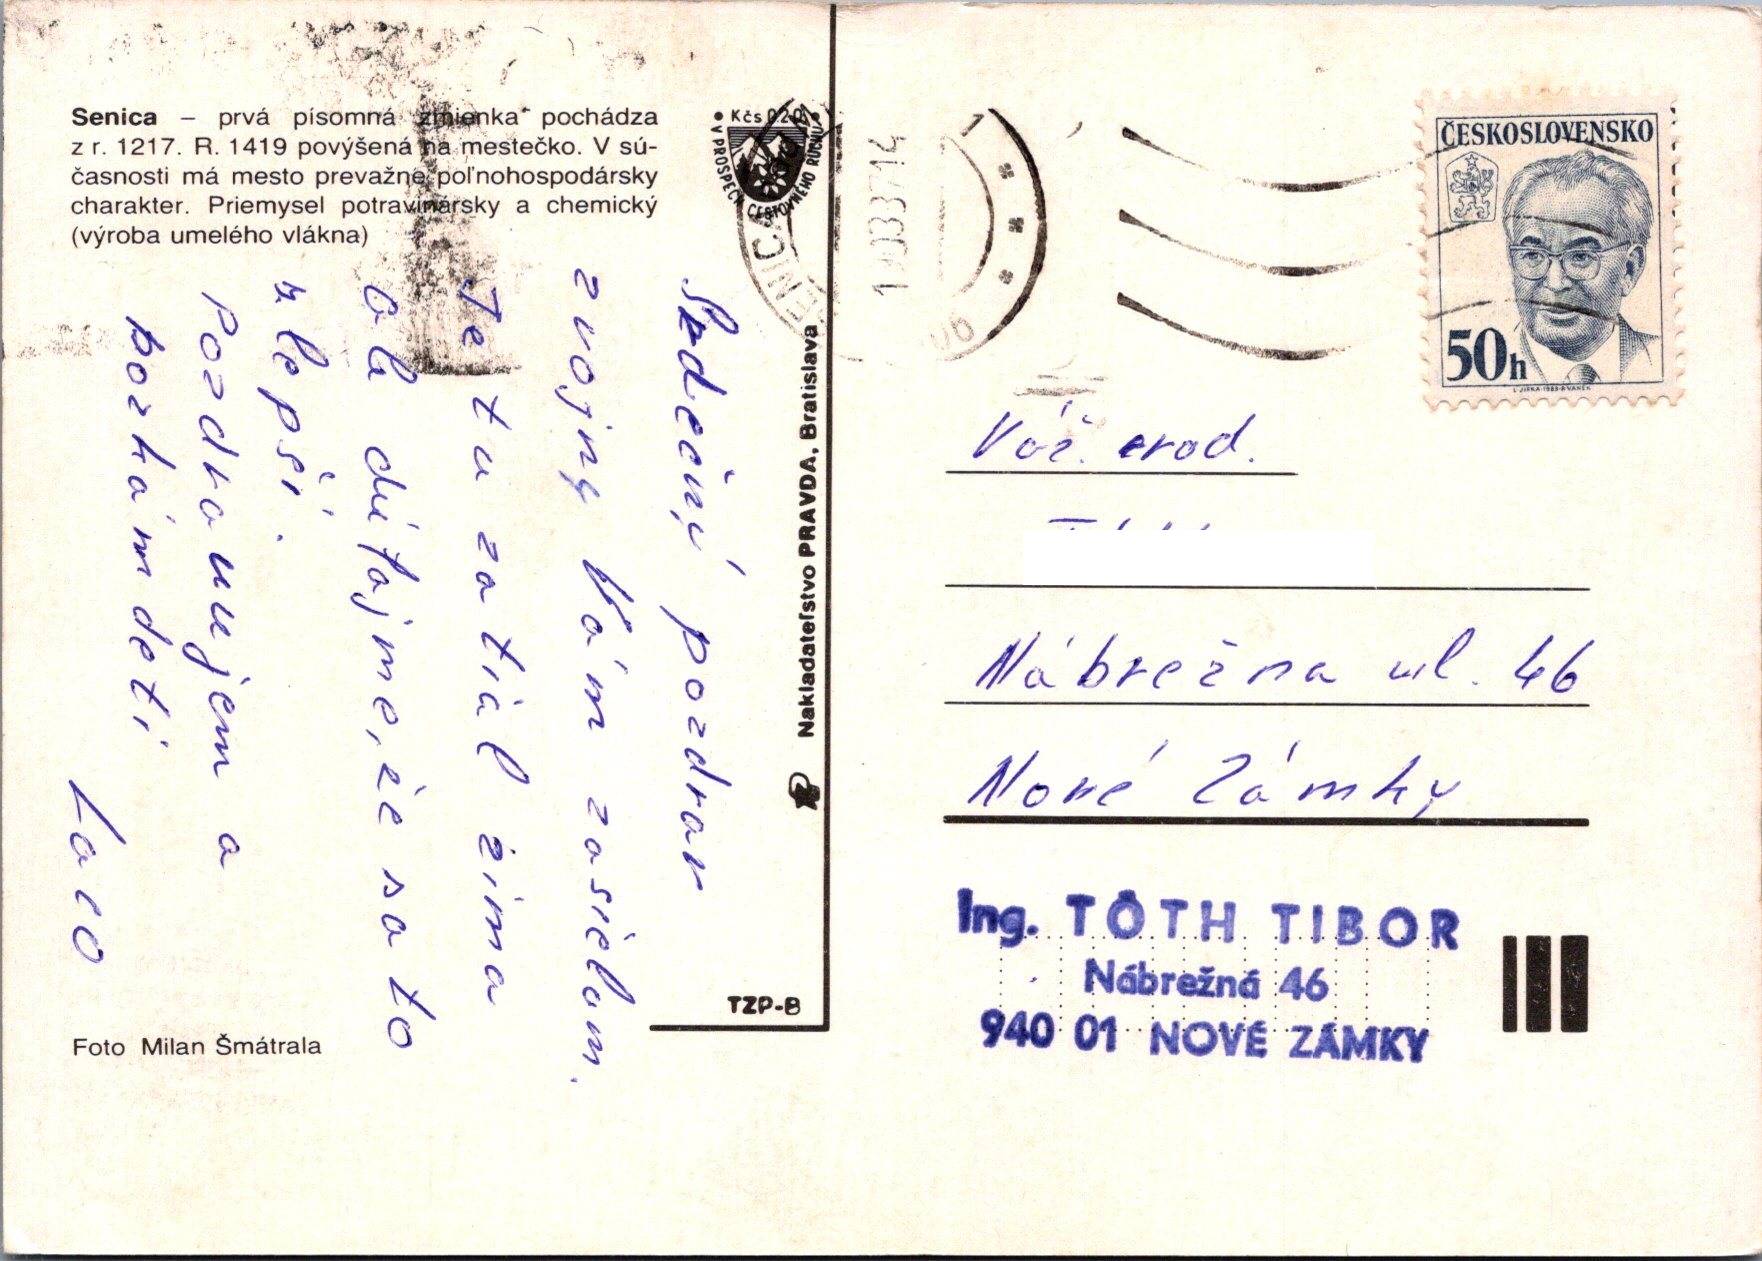 Senica – prvá písomná zmienka pochádza
z r. 1217. R. 1419 povýšená na mestečko. V sú-
časnosti má mesto prevažne poľnohospodársky
charakter. Priemysel potravinársky a chemický
(výroba umelého vlákna)
Kčs 0,20
V PROSPECH CESTOVNÉHO RUCHU
Srdečný pozdrav
zvojny Vám zasielam.
Je tu zatiaľ zima
ale dúfajme, že sa to
zlepší.
Pozdravujem a
bozkám deti
Laco
Foto Milan Šmátrala
Nakladateľstvo PRAVDA, Bratislava
TZP-B
SENICA
ČESKOSLOVENSKO
50h
Váž. rod.
Nábrežna ul. 46
Nové Zámky
Ing. TÓTH TIBOR
Nábrežná 46
940 01 NOVÉ ZÁMKY